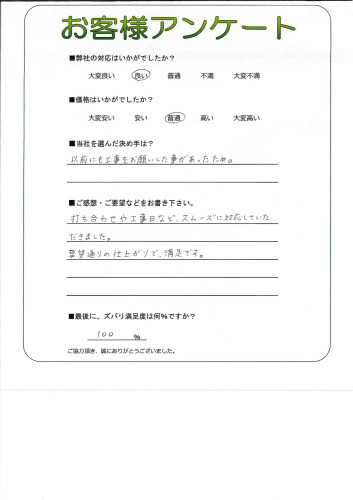 お客様アンケート
■弊社の対応はいかがでしたか？
大変良い 良い 普通 不満 大変不満
■価格はいかがでしたか？
大変安い 安い 普通 高い 大変高い
■当社を選んだ決め手は？
以前にも工事をお願いした事があったため。
■ご感想・ご要望などをお書き下さい。
打ち合わせや工事日など、スムーズに対応していた
だきました。
要望通りの仕上がりで、満足です。
■最後に、ズバリ満足度は何％ですか？
100 ％
ご協力頂き、誠にありがとうございました。